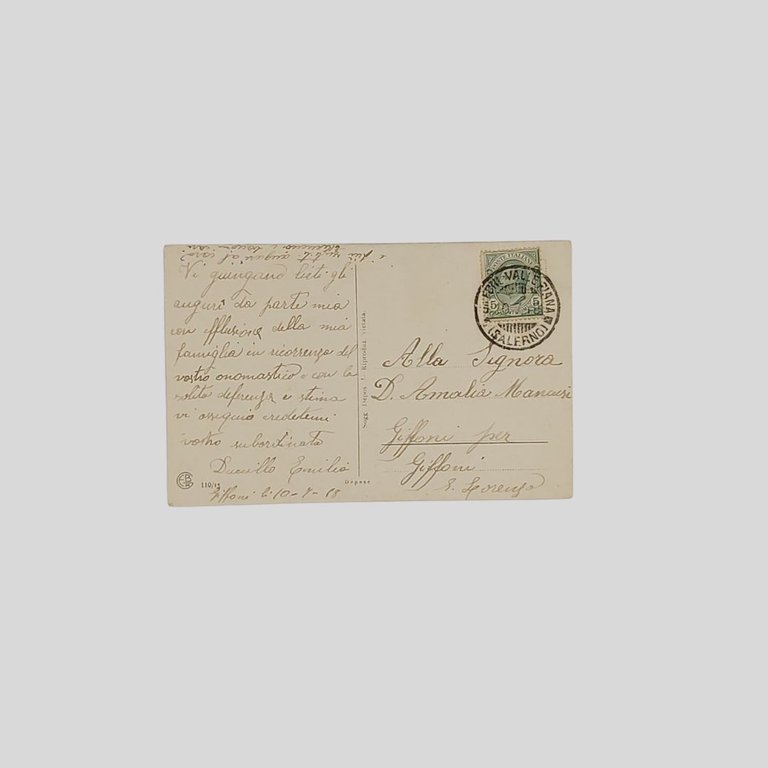 Vi giungano lieti gli
auguri da parte mia
con effusione della mia
famiglia in ricorrenza del
vostro onomastico e con la
solita deferenza e stima
vi ossequio credetemi
vostro subordinato
Emilio
Giffoni li 10-7-18
110/15
Depose
Sogg. Dépos. Riprodur. vietata.
POSTE ITALIANE
5 5
VALLE PIANA
(SALERNO)
Alla Signora
D. Amalia Mancusi
Giffoni per
Giffoni
S. Lorenzo